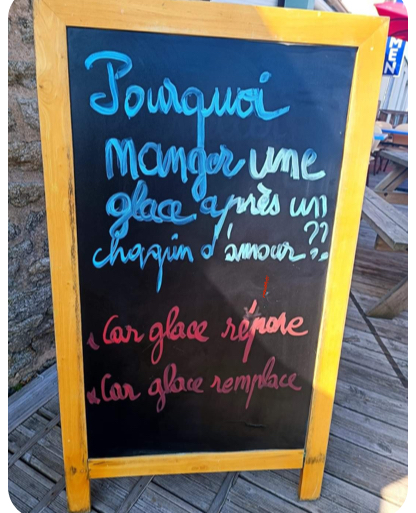 Pourquoi
manger une
glace après un
chagrin d'amour ??
" Car glace répare !
" Car glace remplace
MEN